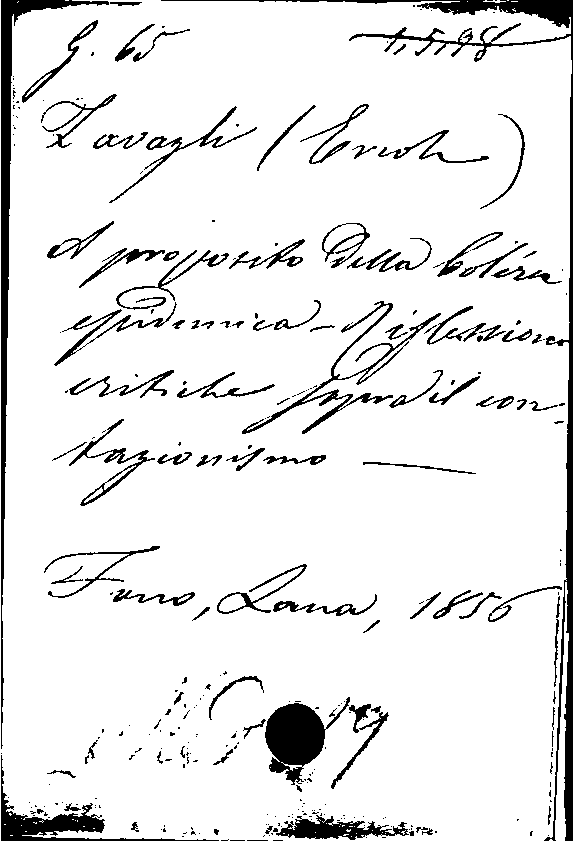 G. 65 1,5,98
Zavagli (Ercole)
A proposito della Coléra
epidemica - Riflessioni
critiche sopra il con-
tagionismo —
Fano, Lana, 1856